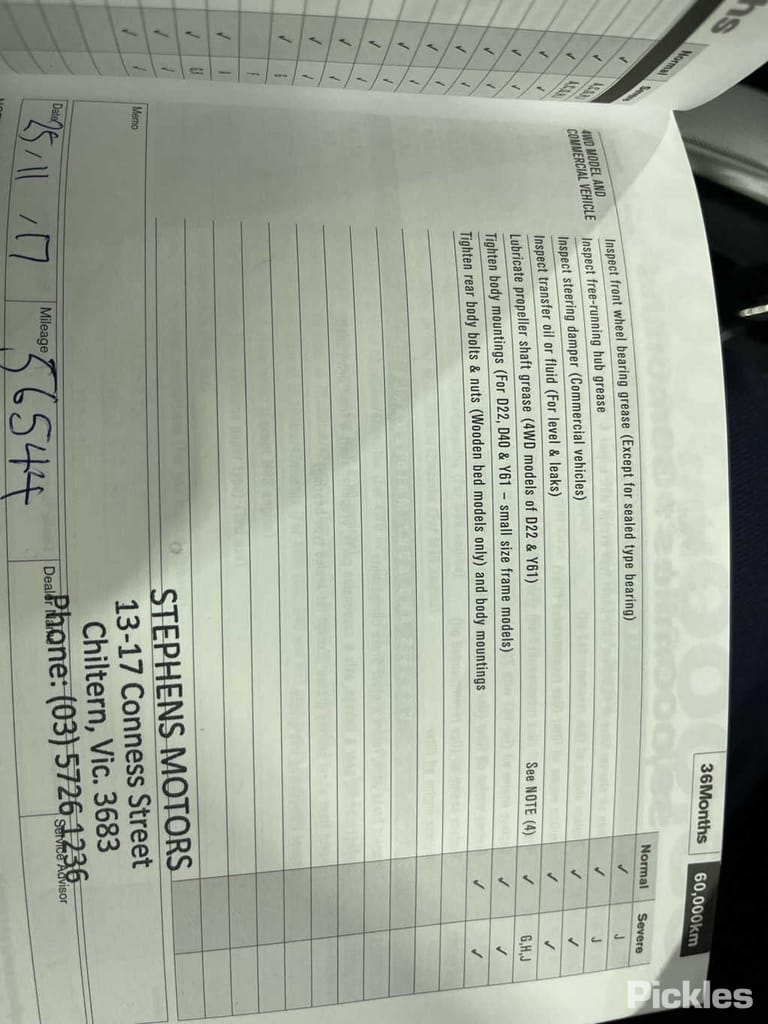 hs
Normal
Severe
36Months
60,000km
Normal
Severe
4WD MODEL AND
COMMERCIAL VEHICLE
Inspect front wheel bearing grease (Except for sealed type bearing) ✓ J
Inspect free-running hub grease ✓ J
Inspect steering damper (Commercial vehicles) ✓ ✓
Inspect transfer oil or fluid (For level & leaks) ✓ ✓
Lubricate propeller shaft grease (4WD models of D22 & Y61) See NOTE (4) ✓ G,H,J
Tighten body mountings (For D22, D40 & Y61 – small size frame models) ✓ ✓
Tighten rear body bolts & nuts (Wooden bed models only) and body mountings ✓ ✓
Memo
STEPHENS MOTORS
13-17 Conness Street
Chiltern, Vic. 3683
Phone: (03) 5726 1236
Date 25/11/17
Mileage 56544
Dealer Name
Service Advisor
Pickles